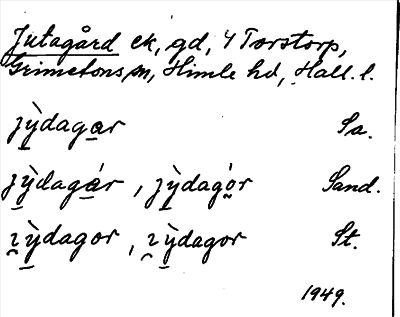 Jutagård ek, gd, 4 Torstorp,
Grimetons sn, Himle hd, Hall. l.
jỳ̱daga̱r Sa.
jỳ̱dagá̱r , jỳ̱dagó̱r Sand.
ɿỳ̱dagor , ɿỳ̱dagor St.
1949.